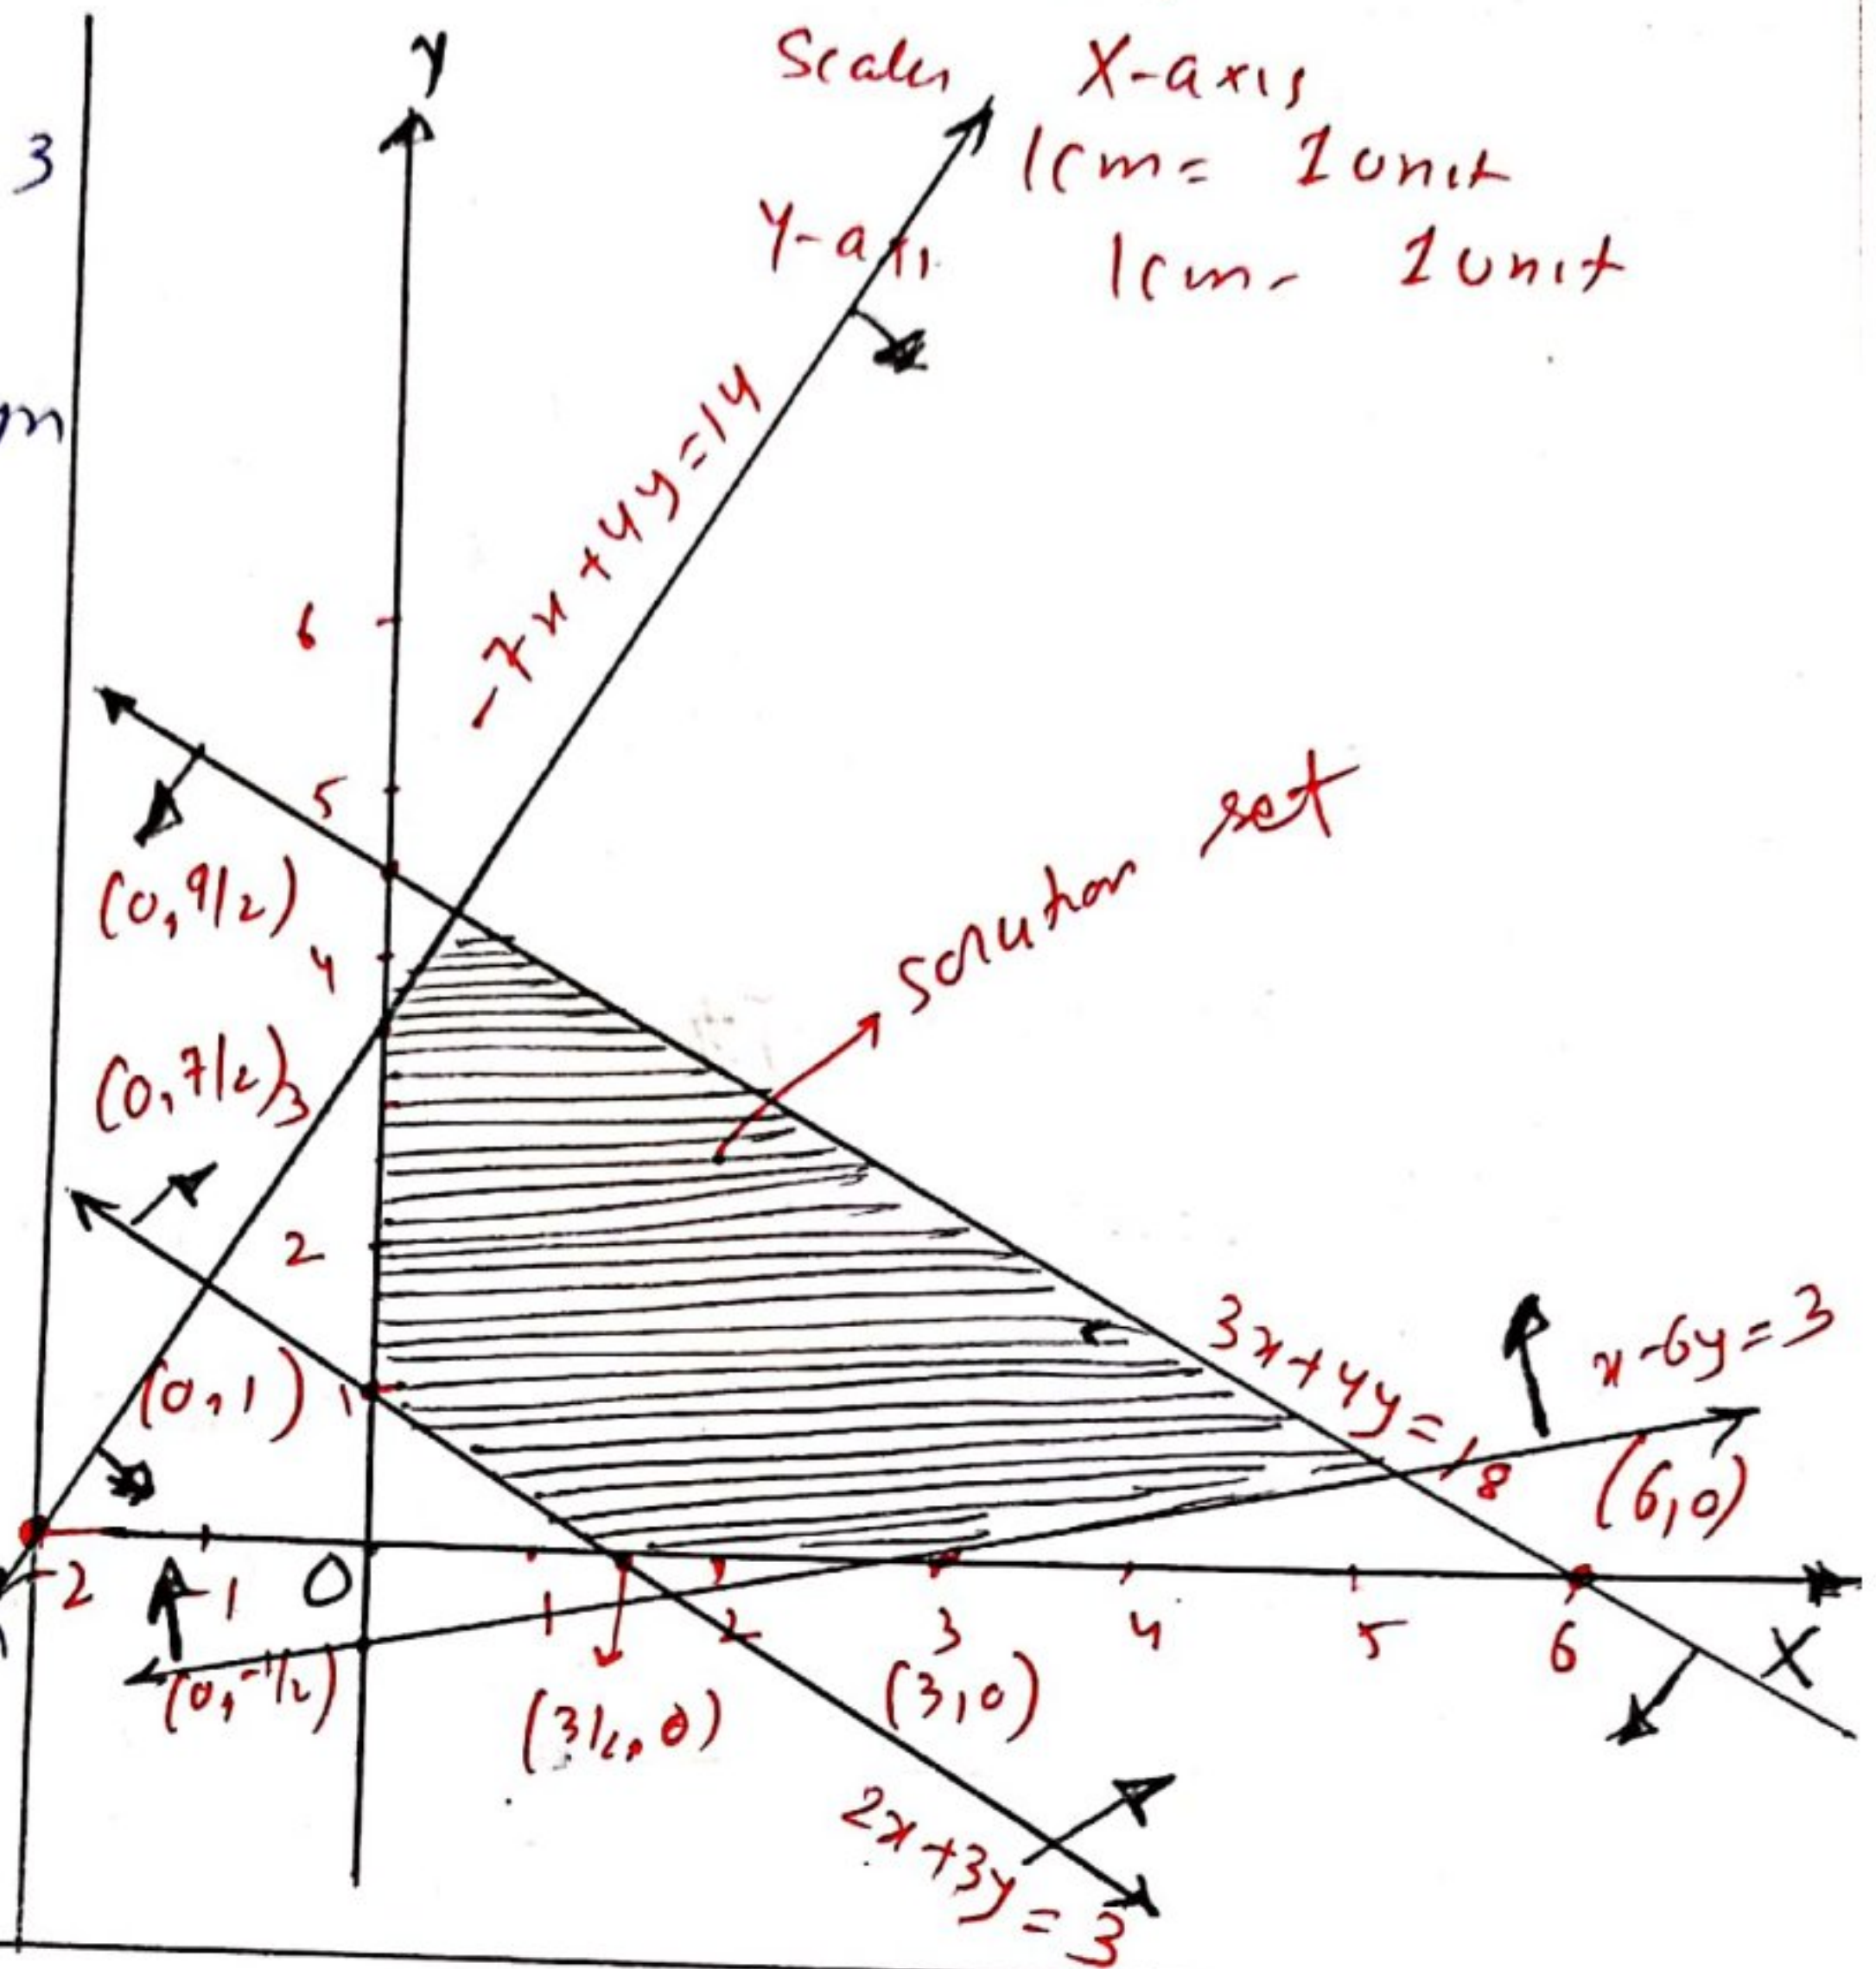 3
m
y
Scales X-axis
1cm= 1unit
Y-axis
1cm= 1unit
-7x+4y=14
6
5
(0,9/2)
4
solution set
(0,7/2)
3
2
(0,1)
1
3x+4y=18
x-6y=3
(6,0)
-2 -1 0 1 2 3 4 5 6 X
(0,-1/2)
(3/2,0)
(3,0)
2x+3y=3